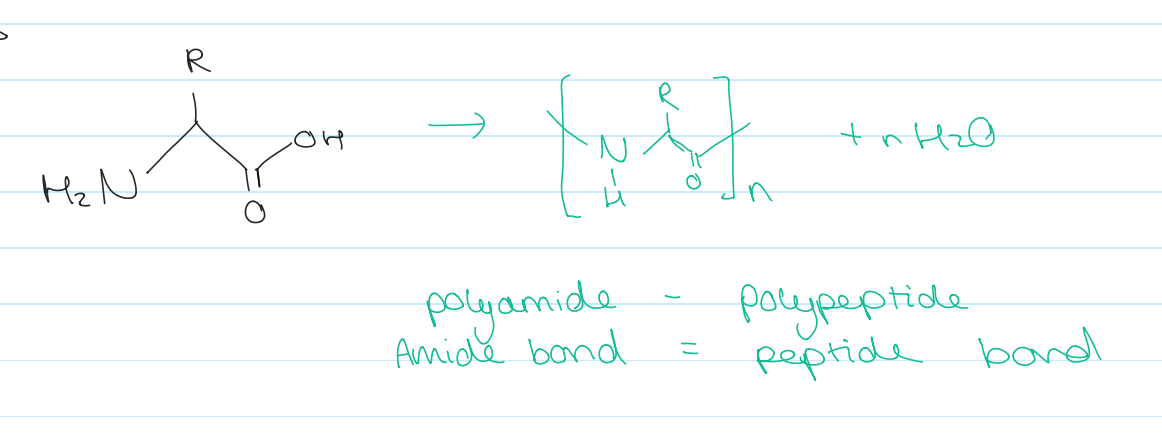 R
R
OH
N
+ nH2O
H2N
O
H
O
n
polyamide - polypeptide
Amide bond = peptide bond